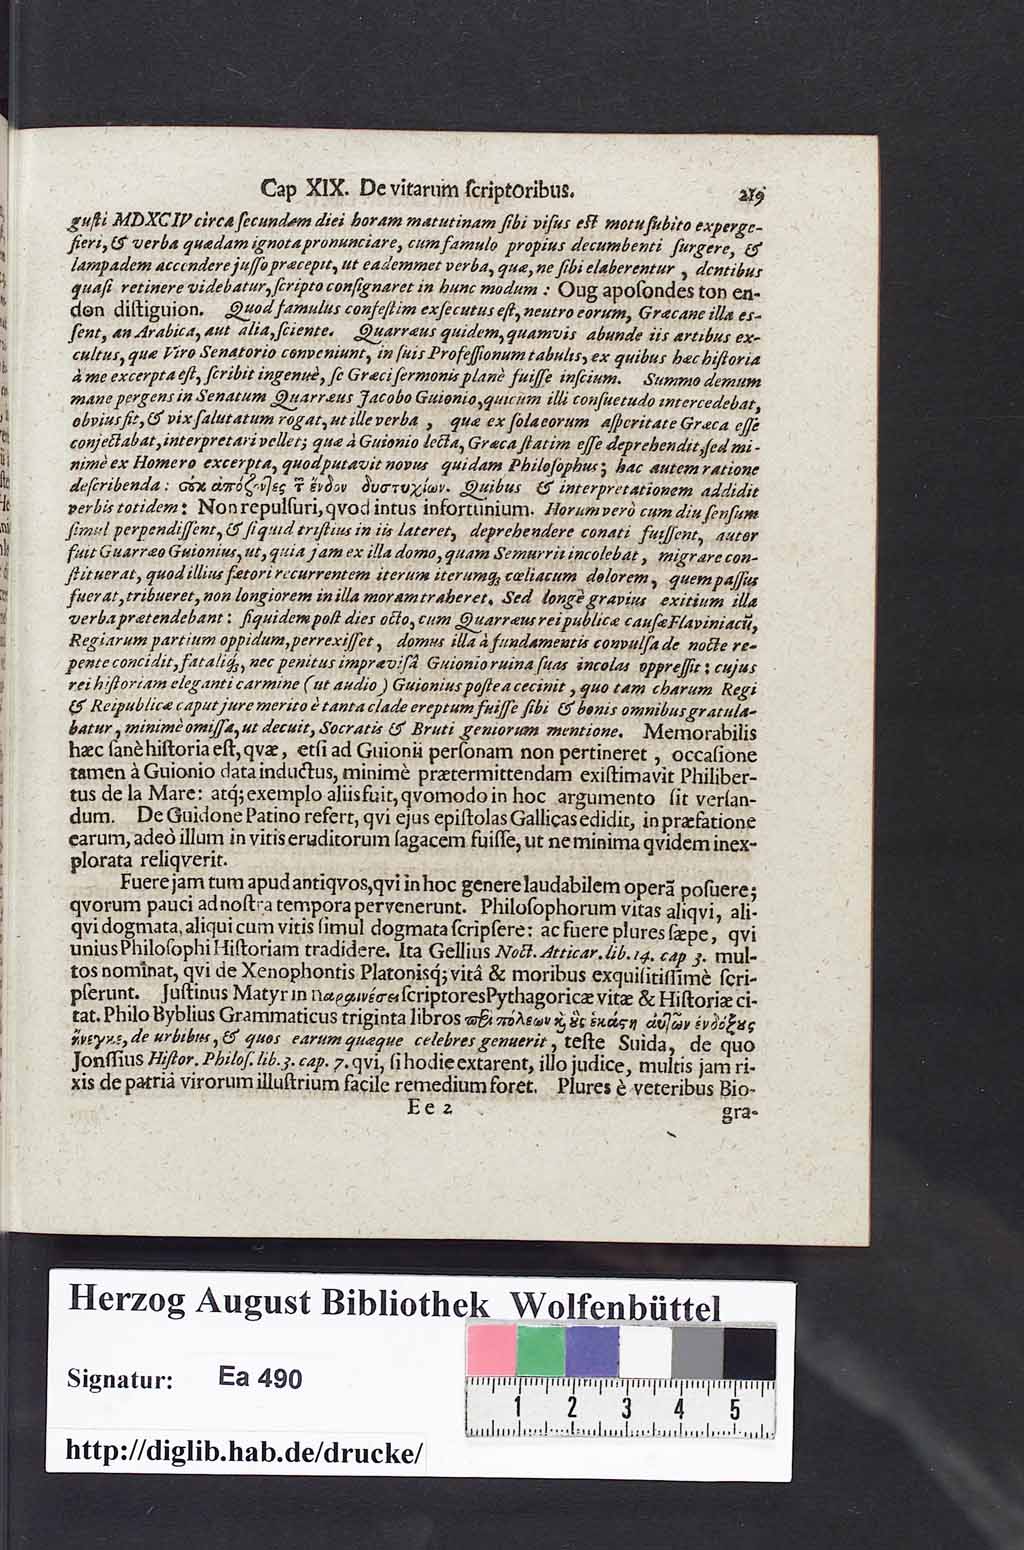 Cap XIX. De vitarum ſcriptoribus. 219
guſti MDXCIV circa ſecundam diei horam matutinam ſibi viſus eſt motu ſubito experge-
fieri, & verba quædam ignota pronunciare, cum famulo propius decumbenti ſurgere, &
lampadem accendere juſſo præcepit, ut eademmet verba, quæ, ne ſibi elaberentur, dentibus
quaſi retinere videbatur, ſcripto conſignaret in hunc modum: Oug apoſondes ton en-
don diſtiguion. Quod famulus confeſtim exſecutus eſt, neutro eorum, Græcane illa eſ-
ſent, an Arabica, aut alia, ſciente. Quarræus quidem, quamvis abunde iis artibus ex-
cultus, quæ Viro Senatorio conveniunt, in ſuis Profeſſionum tabulis, ex quibus hæc hiſtoria
à me excerpta eſt, ſcribit ingenuè, ſe Græci ſermonis planè fuiſſe inſcium. Summo demum
mane pergens in Senatum Quarræus Jacobo Guionio, quicum illi conſuetudo intercedebat,
obvius fit, & vix ſalutatum rogat, ut ille verba, quæ ex ſola eorum aſperitate Græca eſſe
conjectabat, interpretari vellet; quæ à Guionio lecta, Græca ſtatim eſſe deprehendit, ſed mi-
nimè ex Homero excerpta, quod putavit novus quidam Philoſophus; hac autem ratione
deſcribenda: οὐκ ἀπόζοντες τ̃ ἔνδον δυστυχίων. Quibus & interpretationem addidit
verbis totidem: Non repulſuri, qvod intus infortunium. Horum verò cum diu ſenſum
ſimul perpendiſſent, & ſi quid triſtius in iis lateret, deprehendere conati fuiſſent, autor
fuit Guarræo Guionius, ut, quia jam ex illa domo, quam Semurrii incolebat, migrare con-
ſtituerat, quod illius fœtori recurrentem iterum iterumq; cœliacum dolorem, quem paſſus
fuerat, tribueret, non longiorem in illa moram traheret. Sed longè gravius exitium illa
verba prætendebant: ſiquidem poſt dies octo, cum Quarræus reipublicæ cauſæ Flaviniacũ,
Regiarum partium oppidum, perrexiſſet, domus illa à fundamentis convulſa de nocte re-
pente concidit, fataliq́;, nec penitus impræviſâ Guionio ruina ſuas incolas oppreſſit: cujus
rei hiſtoriam eleganti carmine (ut audio) Guionius poſtea cecinit, quo tam charum Regi
& Reipublicæ caput jure merito è tanta clade ereptum fuiſſe ſibi & bonis omnibus gratula-
batur, minimè omiſſa, ut decuit, Socratis & Bruti geniorum mentione. Memorabilis
hæc ſanè hiſtoria eſt, qvæ, etſi ad Guionii perſonam non pertineret, occaſione
tamen à Guionio data inductus, minimè prætermittendam exiſtimavit Philiber-
tus de la Mare: atq; exemplo aliis fuit, qvomodo in hoc argumento ſit verſan-
dum. De Guidone Patino refert, qvi ejus epiſtolas Gallicas edidit, in præfatione
earum, adeò illum in vitis eruditorum ſagacem fuiſſe, ut ne minima qvidem inex-
plorata reliqverit.
Fuere jam tum apud antiqvos, qvi in hoc genere laudabilem operã poſuere;
qvorum pauci ad noſtra tempora pervenerunt. Philoſophorum vitas aliqvi, ali-
qvi dogmata, aliqui cum vitis ſimul dogmata ſcripſere: ac fuere plures ſæpe, qvi
unius Philoſophi Hiſtoriam tradidere. Ita Gellius Noct. Atticar. lib. 14. cap 3. mul-
tos nominat, qvi de Xenophontis Platonisq́; vitâ & moribus exquiſitiſſimè ſcri-
pſerunt. Juſtinus Matyr in Παραινέσει ſcriptores Pythagoricæ vitæ & Hiſtoriæ ci-
tat. Philo Byblius Grammaticus triginta libros περὶ πόλεων κὶ οὓς ἑκάστη αὐτῶν ἐνδόξους
ἤνεγκε, de urbibus, & quos earum quæque celebres genuerit, teſte Suida, de quo
Jonſſius Hiſtor. Philoſ. lib. 3. cap. 7. qvi, ſi hodie extarent, illo judice, multis jam ri-
xis de patriâ virorum illuſtrium facile remedium foret. Plures è veteribus Bio-
E e 2 gra-
Herzog August Bibliothek Wolfenbüttel
Signatur: Ea 490
1 2 3 4 5
http://diglib.hab.de/drucke/